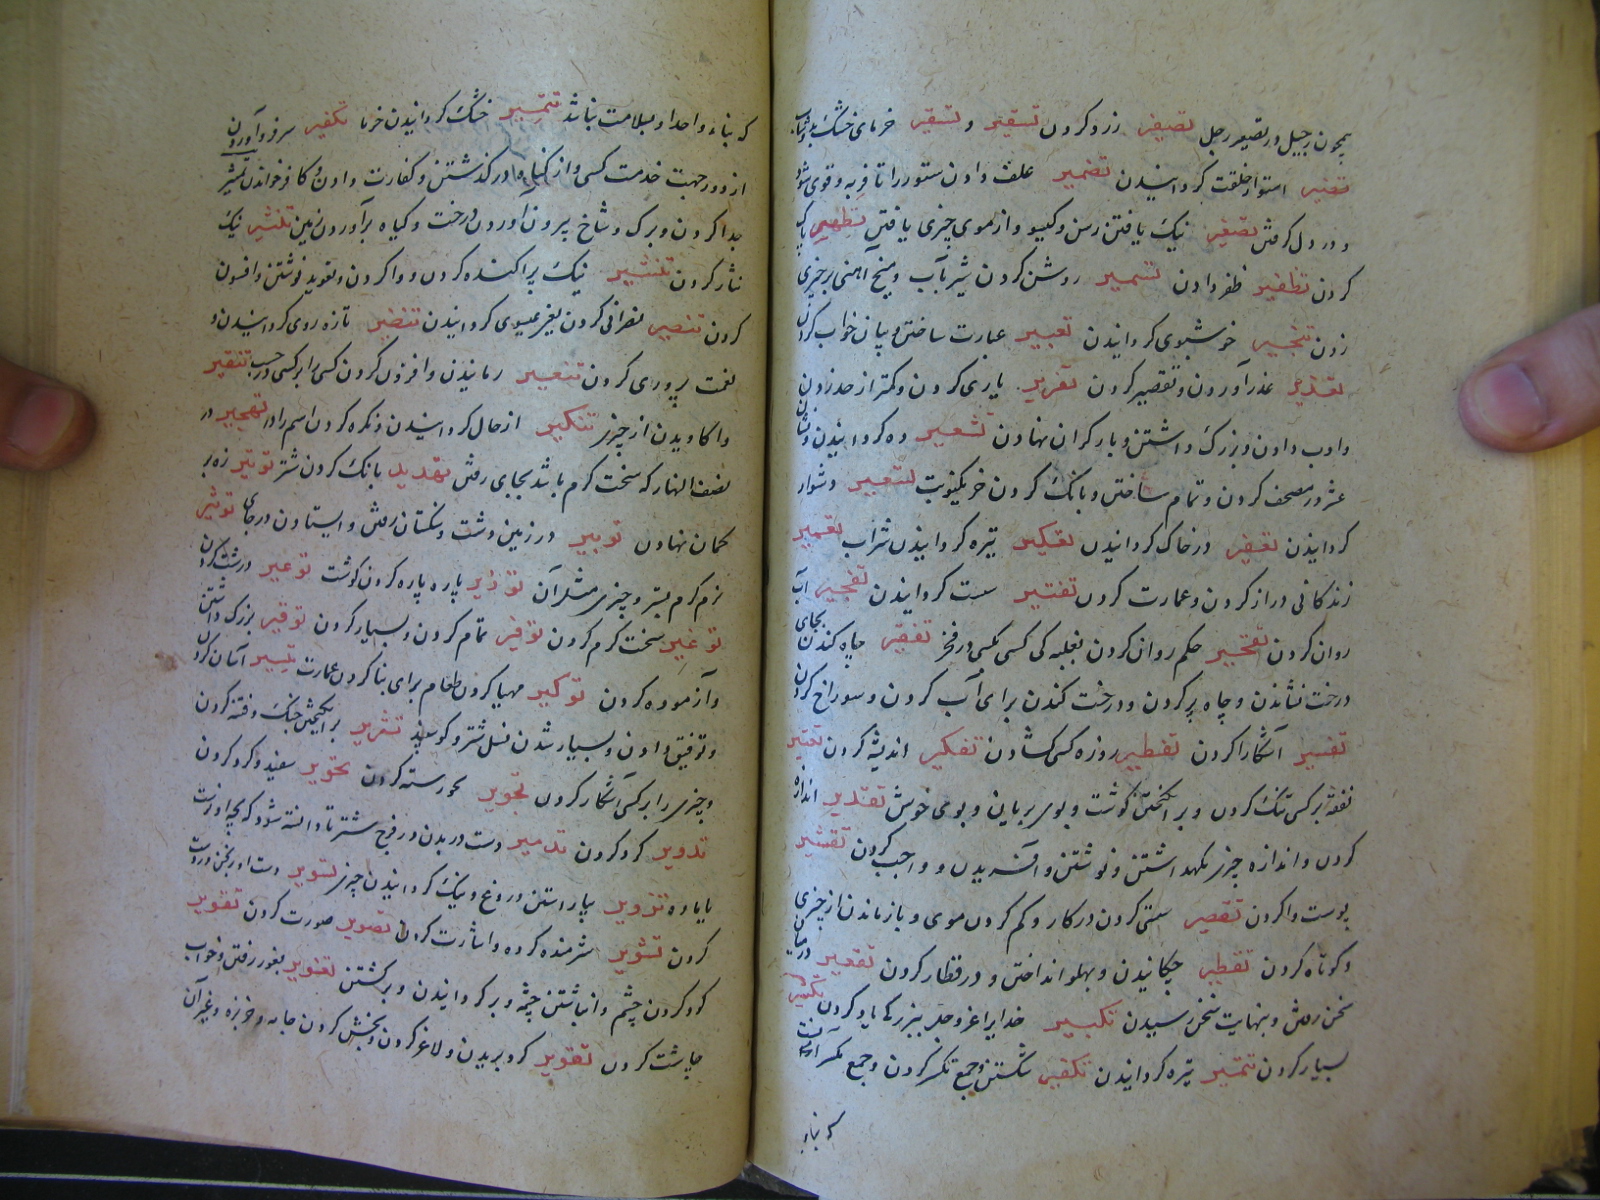 همچون رجیل در تصغیر رجل تصفیر زرد کردن تسقیر و تشقیر خرمای خشک
تضبیر استوار خلقت گردانیدن تضمیر علف دادن ستور را تا فربه و قوی شود
و در دل گرفتن تضفیر نیک بافتن رسن و گیسو و از موی چیزی بافتن تطهیر پاک
کردن تظفیر ظفر دادن تسمیر روشن کردن شیر بآب و میخ آهنی بر چیزی
زدن تبخیر خوشبوی گردانیدن تعبیر عبارت ساختن و بیان خواب کردن
تعذیر عذر آوردن و تقصیر کردن تعزیر یاری کردن و کمتر از حد زدن
و ادب دادن و بزرگ داشتن و بار گران نهادن تعشیر ده گردانیدن و نشان
عشر در مصحف کردن و تمام ساختن و بانگ کردن خر یکنوبت تعسیر دشوار
گردانیدن تعفیر در خاک گردانیدن تعکیر تیره گردانیدن شراب تعمیر
زندگانی دراز کردن و عمارت کردن تفتیر سست گردانیدن تفجیر آب
روان کردن تفخیر حکم روان کردن بغلبه کسی در فخر تفقیر چاه کندن بجای
درخت نشاندن و چاه پر کردن و درخت کندن برای آب کردن و سوراخ کردن
تفسیر آشکارا کردن تفطیر روزه کسی گشادن تفکیر اندیشه کردن تقتیر
نفقه بر کسی تنگ کردن و بوی بریان و بوی خوش تقدیر اندازه
کردن و اندازه چیزی نگهداشتن و نوشتن و آفریدن و واجب کردن تقشیر
پوست وا کردن تقصیر سستی کردن در کار و کم کردن موی و باز ماندن از چیزی
و کوتاه کردن تقطیر چکانیدن و بپهلو انداختن و در قطار کردن تقعیر در میان
سخن رفتن و بنهایت سخن رسیدن تکبیر خدایرا عز و جل ببزرگی یاد کردن تکثیر
بسیار کردن تیره گردانیدن تکسیر شکستن و جمع تکسیر کردن و جمع مکسر آنست
که بناء
که بناء واحد او بسلامت نباشد تتمیر خشک گردانیدن خرما تکفیر سر فرو آوردن
از دور جهت خدمت کسی و از گناه در گذشتن و کفارت دادن و کافر خواندن تمشیر
جدا کردن و برگ و شاخ بیرون آوردن درخت و گیاه برآوردن زمین تنثیر نیک
نثار کردن تنشیر نیک پراکنده کردن و وا کردن و تعوید نوشتن و افسون
کردن تنصیر نصرانی کردن یعنی عیسوی گردانیدن تنضیر تازه روی گردانیدن و
نعمت پروری کردن تنفیر رمانیدن و افزون کردن کسی را بر کسی در حسب تنقیر
وا کاویدن از چیزی تنکیر از حال گردانیدن و نکره کردن اسم را تهجیر در
نصف النهار که سخت گرم باشد بجای رفتن تهدیر بانگ کردن شتر توتیر زه بر
کمان نهادن در زمین دشت و سنگستان رفتن و ایستادن در جای توثیر
نرم کردن بستر و چیزی مثل آن توذیر پاره پاره کردن گوشت توعیر درشت کردن
توغیر سخت گرم کردن توفیر تمام کردن و بسیار کردن توقیر بزرگ داشتن
و آزموده کردن توکیر مهیا کردن طعام برای بنا کردن عمارت تیسیر آسان کردن
و توفیق دادن و بسیار شدن نسل شتر و گوسپند تثویر برانگیختن جنگ و فتنه کردن
و چیزی را بر کسی آشکار کردن تجویر جور کردن تحویر سفید و گرد کردن
تدویر گرد کردن تذمیر دست در بردن در فرج شتر تا دانسته شود که بچه او نرست
یا ماده تزویر بیاراستن دروغ و نیک گردانیدن چیزی تسویر دست اورنجن در دست
کردن تشویر شرمنده کردن و اشارت کردن تصویر صورت کردن تعویر
کور کردن چشم و انباشتن چشمه و بر گردانیدن و برگشتن تغویر بغور رفتن و خواب
چاشت کردن تقویر گرد بریدن و لاغر کردن و بخش کردن جامه و خربزه و غیر آن